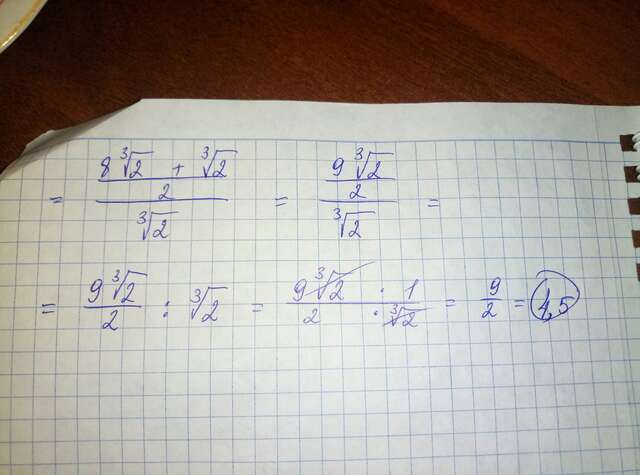 = \frac{\frac{8\sqrt[3]{2} + \sqrt[3]{2}}{2}}{\sqrt[3]{2}} = \frac{\frac{9\sqrt[3]{2}}{2}}{\sqrt[3]{2}} =
= \frac{9\sqrt[3]{2}}{2} : \sqrt[3]{2} = \frac{9\sqrt[3]{2} \cdot 1}{2 \cdot \sqrt[3]{2}} = \frac{9}{2} = 4,5